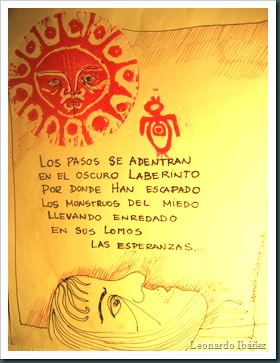 LOS PASOS SE ADENTRAN
EN EL OSCURO LABERINTO
POR DONDE HAN ESCAPADO
LOS MONSTRUOS DEL MIEDO
LLEVANDO ENREDADO
EN SUS LOMOS
LAS ESPERANZAS...
Leonardo Ibáñez